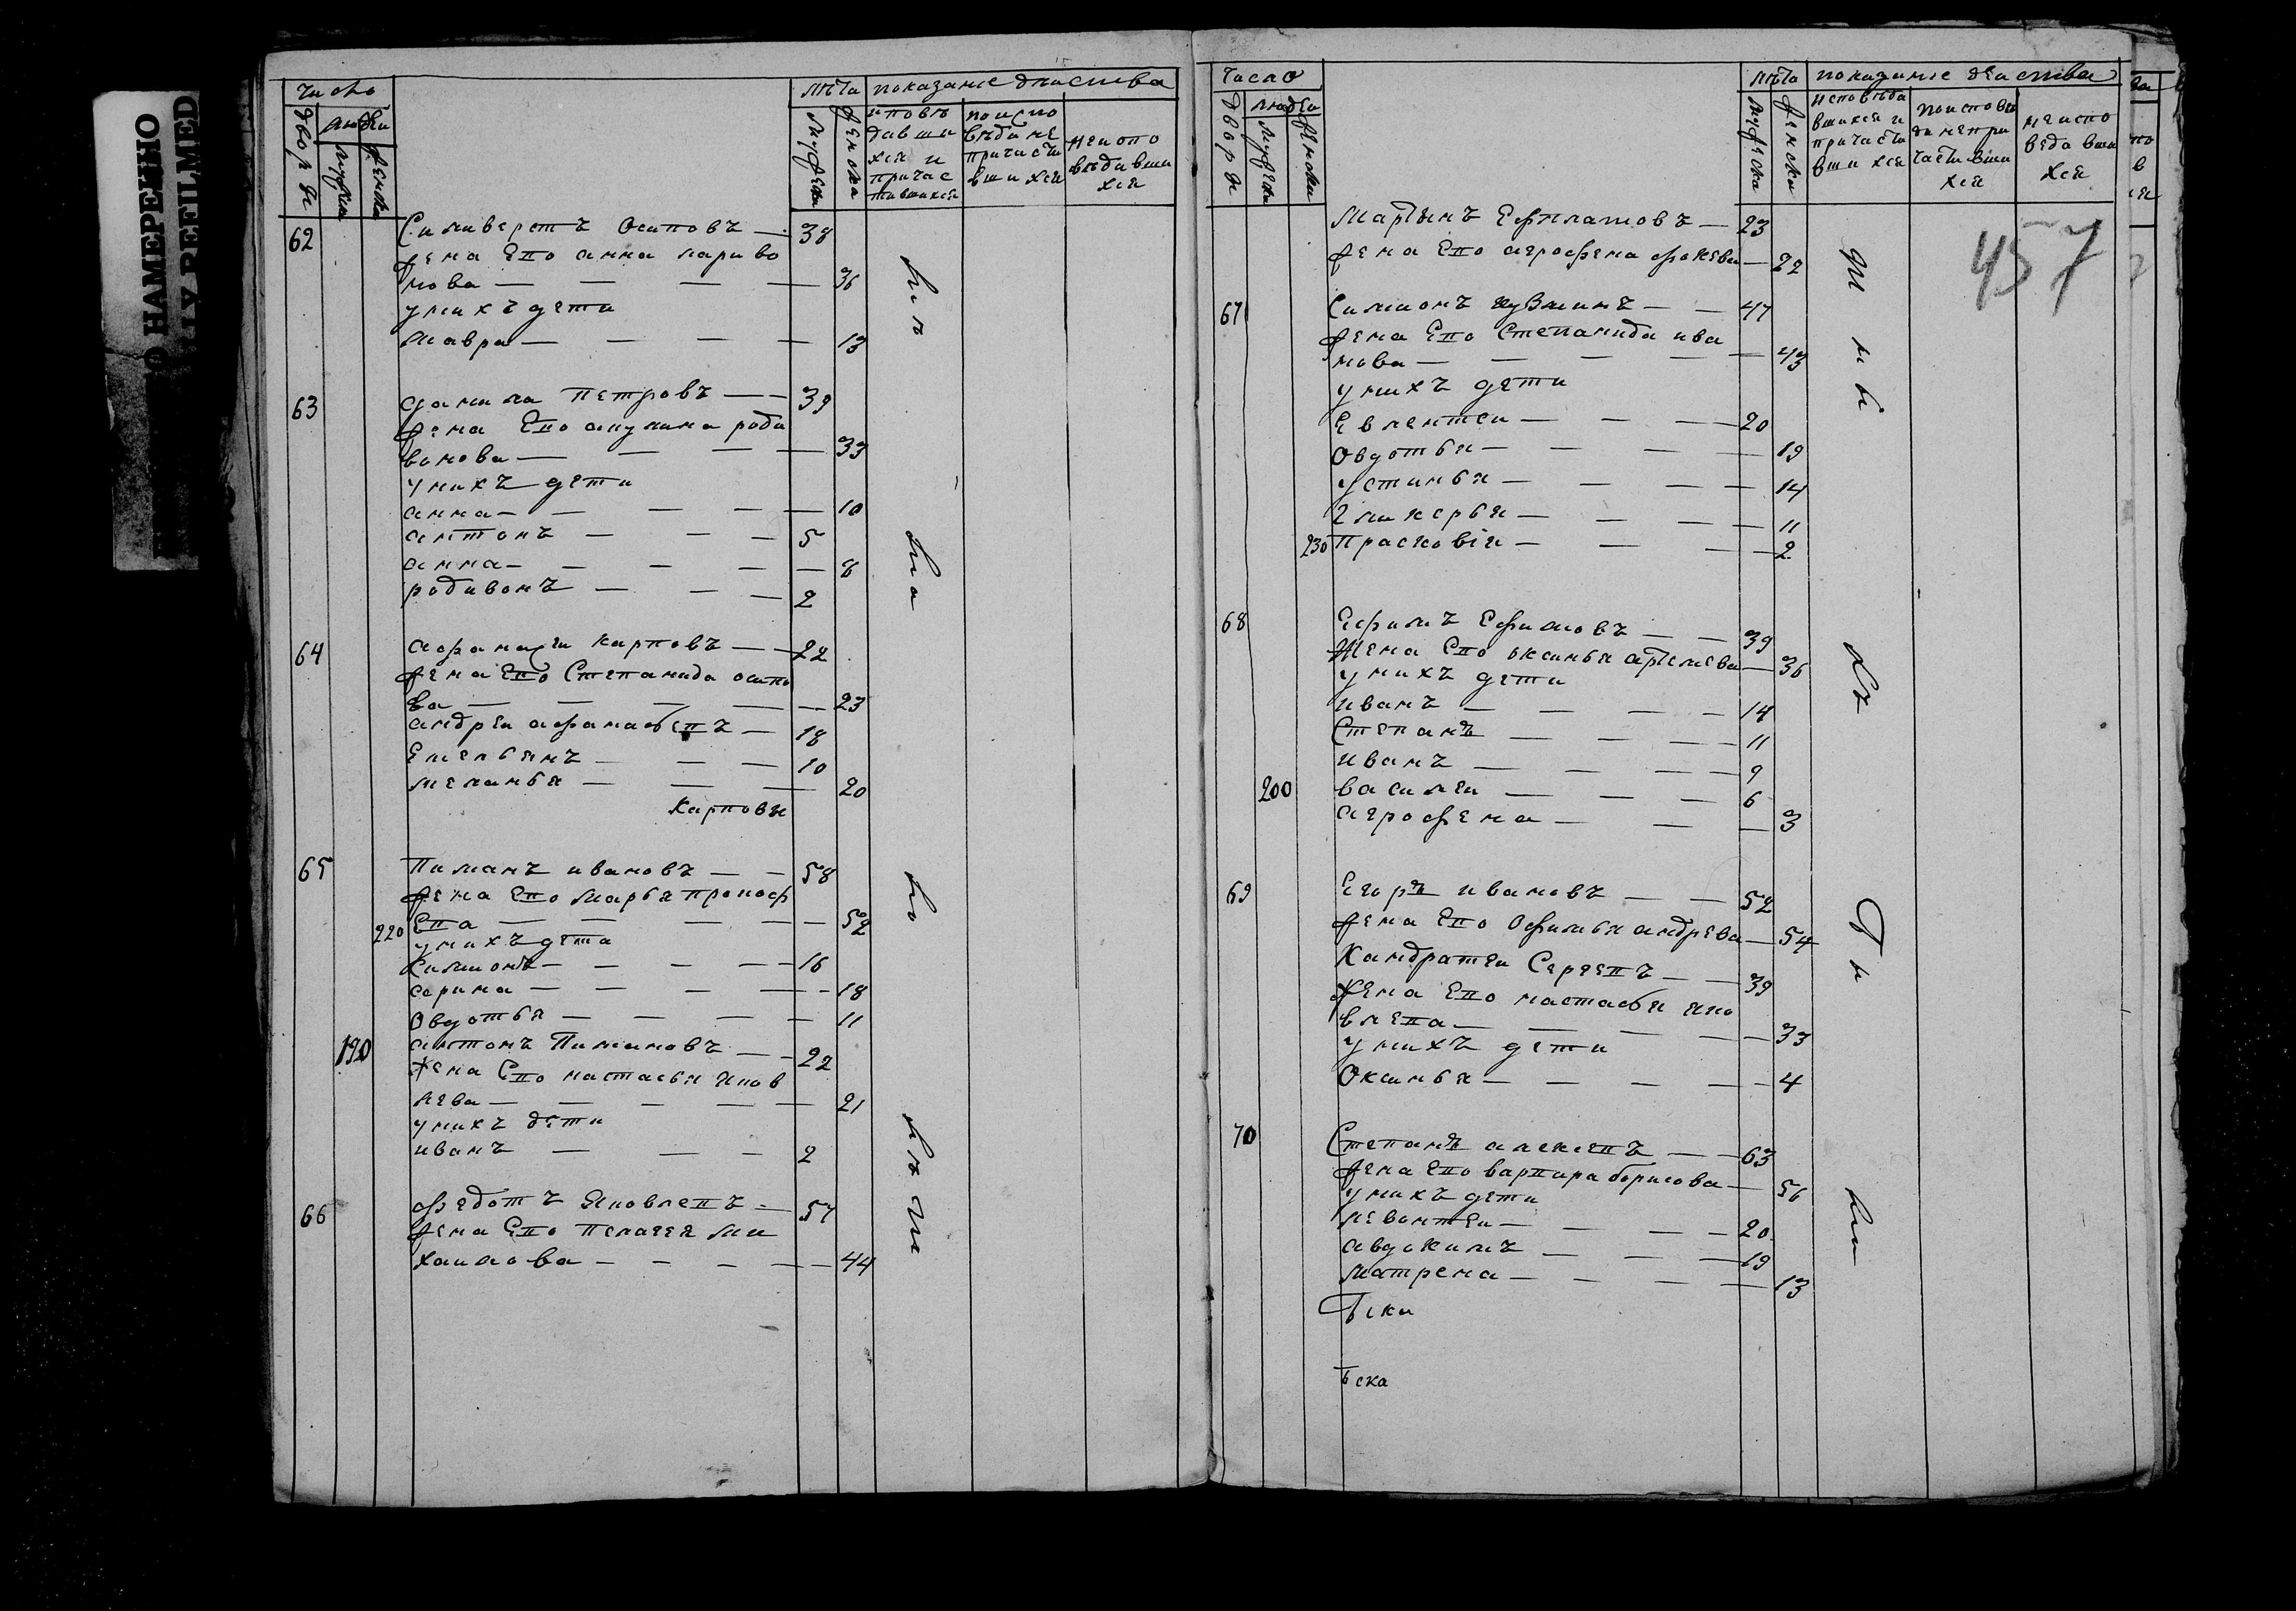 НАМЕРЕННО
LY REFILMED
число
лѣта показание дѣиства
дворы
люди
мужеск
женска
мужеска
женска
исповѣ
давши
хся и
причас
тившихся
по испо
вѣди не
причасти
вшихся
не испо
вѣдавши
хся
62 Силиверстъ Осиповъ — 38
жена Его анна лариво
нова — — — — 36
у нихъ дети
Мавра — — — — 13
63 данила петровъ — — 39
жена Его акулина роди
вонова — — — — 33
у нихъ дети
анна — — — — 10
антонъ — — — 5
анна — — — — 8
родивонъ — — — 2
64 афанасеи карповъ — — 22
жена Его Степанида осипо
ва — — — — 23
андреи афанасьевъ — 18
Емельянъ — — — 10
меланья — — — 20
карповы
65 Пиманъ ивановъ — — 58
жена Его Марья прокоф
220 Ева — — — — 52
у нихъ дети
Филимонъ — — — — 16
арина — — — — 18
Овдотья — — — — 11
190 антонъ Пимановъ — — 22
жена Его настасья яков
лева — — — — 21
у нихъ дети
иванъ — — — 2
66 федотъ Яковлевъ — 57
жена Его пелагея ми
хаилова — — — — 44
число
лѣта показание дѣиства
дворы
люди
мужеск
женски
мужеска
женска
исповѣда
вшихся и
причасти
вшихся
по исповѣ
ди не при
частивши
хся
не испо
веда вши
хся
457
Мартынъ Ефплатовъ — 23
жена Его агрофена фокева — 22
67 Симионъ кузминъ — — 47
жена Его Степанида ива
нова — — — — 43
у нихъ дети
Евлентеи — — — — 20
Овдотья — — — — 19
устинья — — — — 14
гликерья — — — — 11
230 Прасковія — — — 2
68 Ефимъ Ефимовъ — — 39
Жена Его оксинья артемева — 36
у нихъ дети
иванъ — — — — 14
Степанъ — — — — 11
иванъ — — — — 9
200 василеи — — — 6
агрофена — — — 3
69 Егоръ ивановъ — — 52
жена Его Офимья андрева — 54
Кандратеи Сергевъ — — 39
жена Его настасья яко
влева — — — — 33
у нихъ дети
Оксинья — — — — 4
70 Степанъ алексевъ — — 63
жена Его варвара борисова — 56
у нихъ дети
леонтеи — — — — 20
авдокимъ — — — 19
матрена — — — — 13
Ѣска
Ѣска